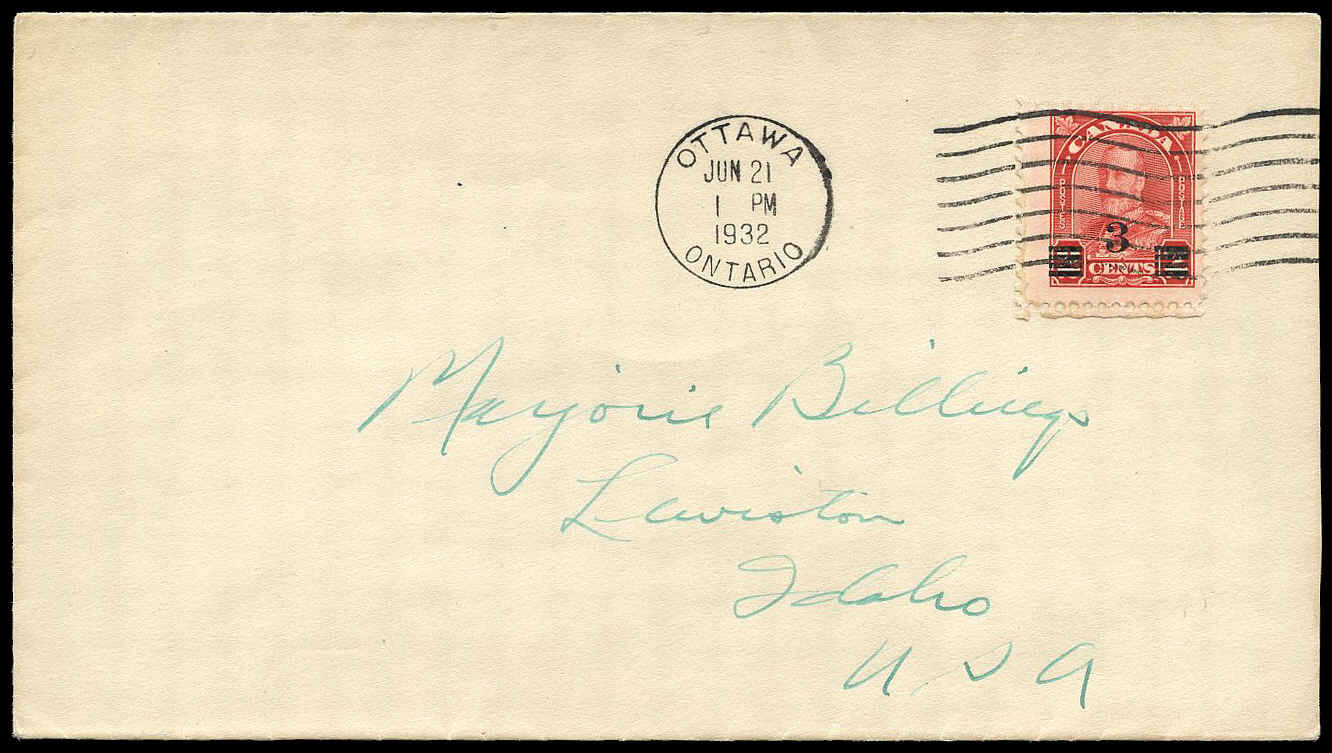 OTTAWA
JUN 21
1 PM
1932
ONTARIO
CANADA
POSTES
POSTAGE
3
CENTS
Marjorie Billings
Lewiston
Idaho
USA